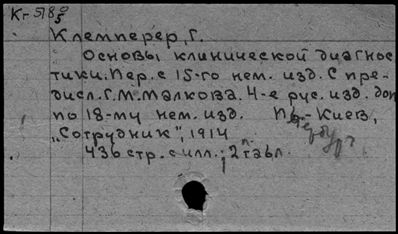 Кг 5780/5
Клемперер, Г.
Основы клинической диагнос-
тики. Пер. с 15-го нем. изд. С пре-
дисл. Г. М. Малкова. 4-е рус. изд. доп.
по 18-му нем. изд. Пб.-Киев,
ербург
"Сотрудник", 1914
436 стр. с илл.; 2 л. табл.